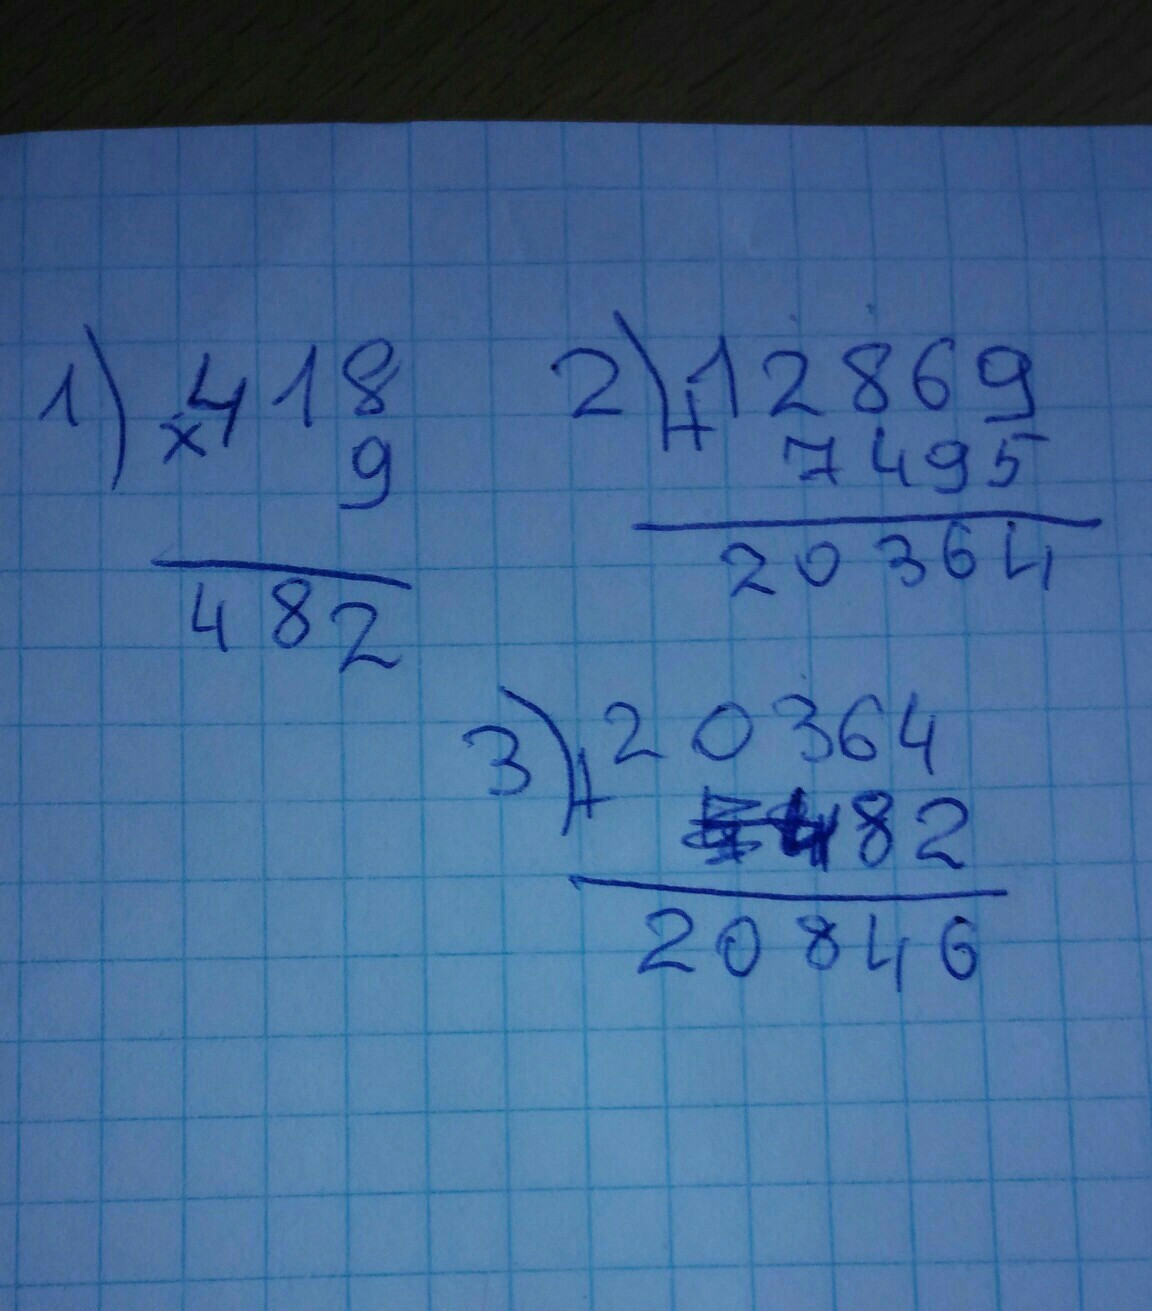 1) ×418
9
482
2) +12869
7495
20364
3) +20364
482
20846